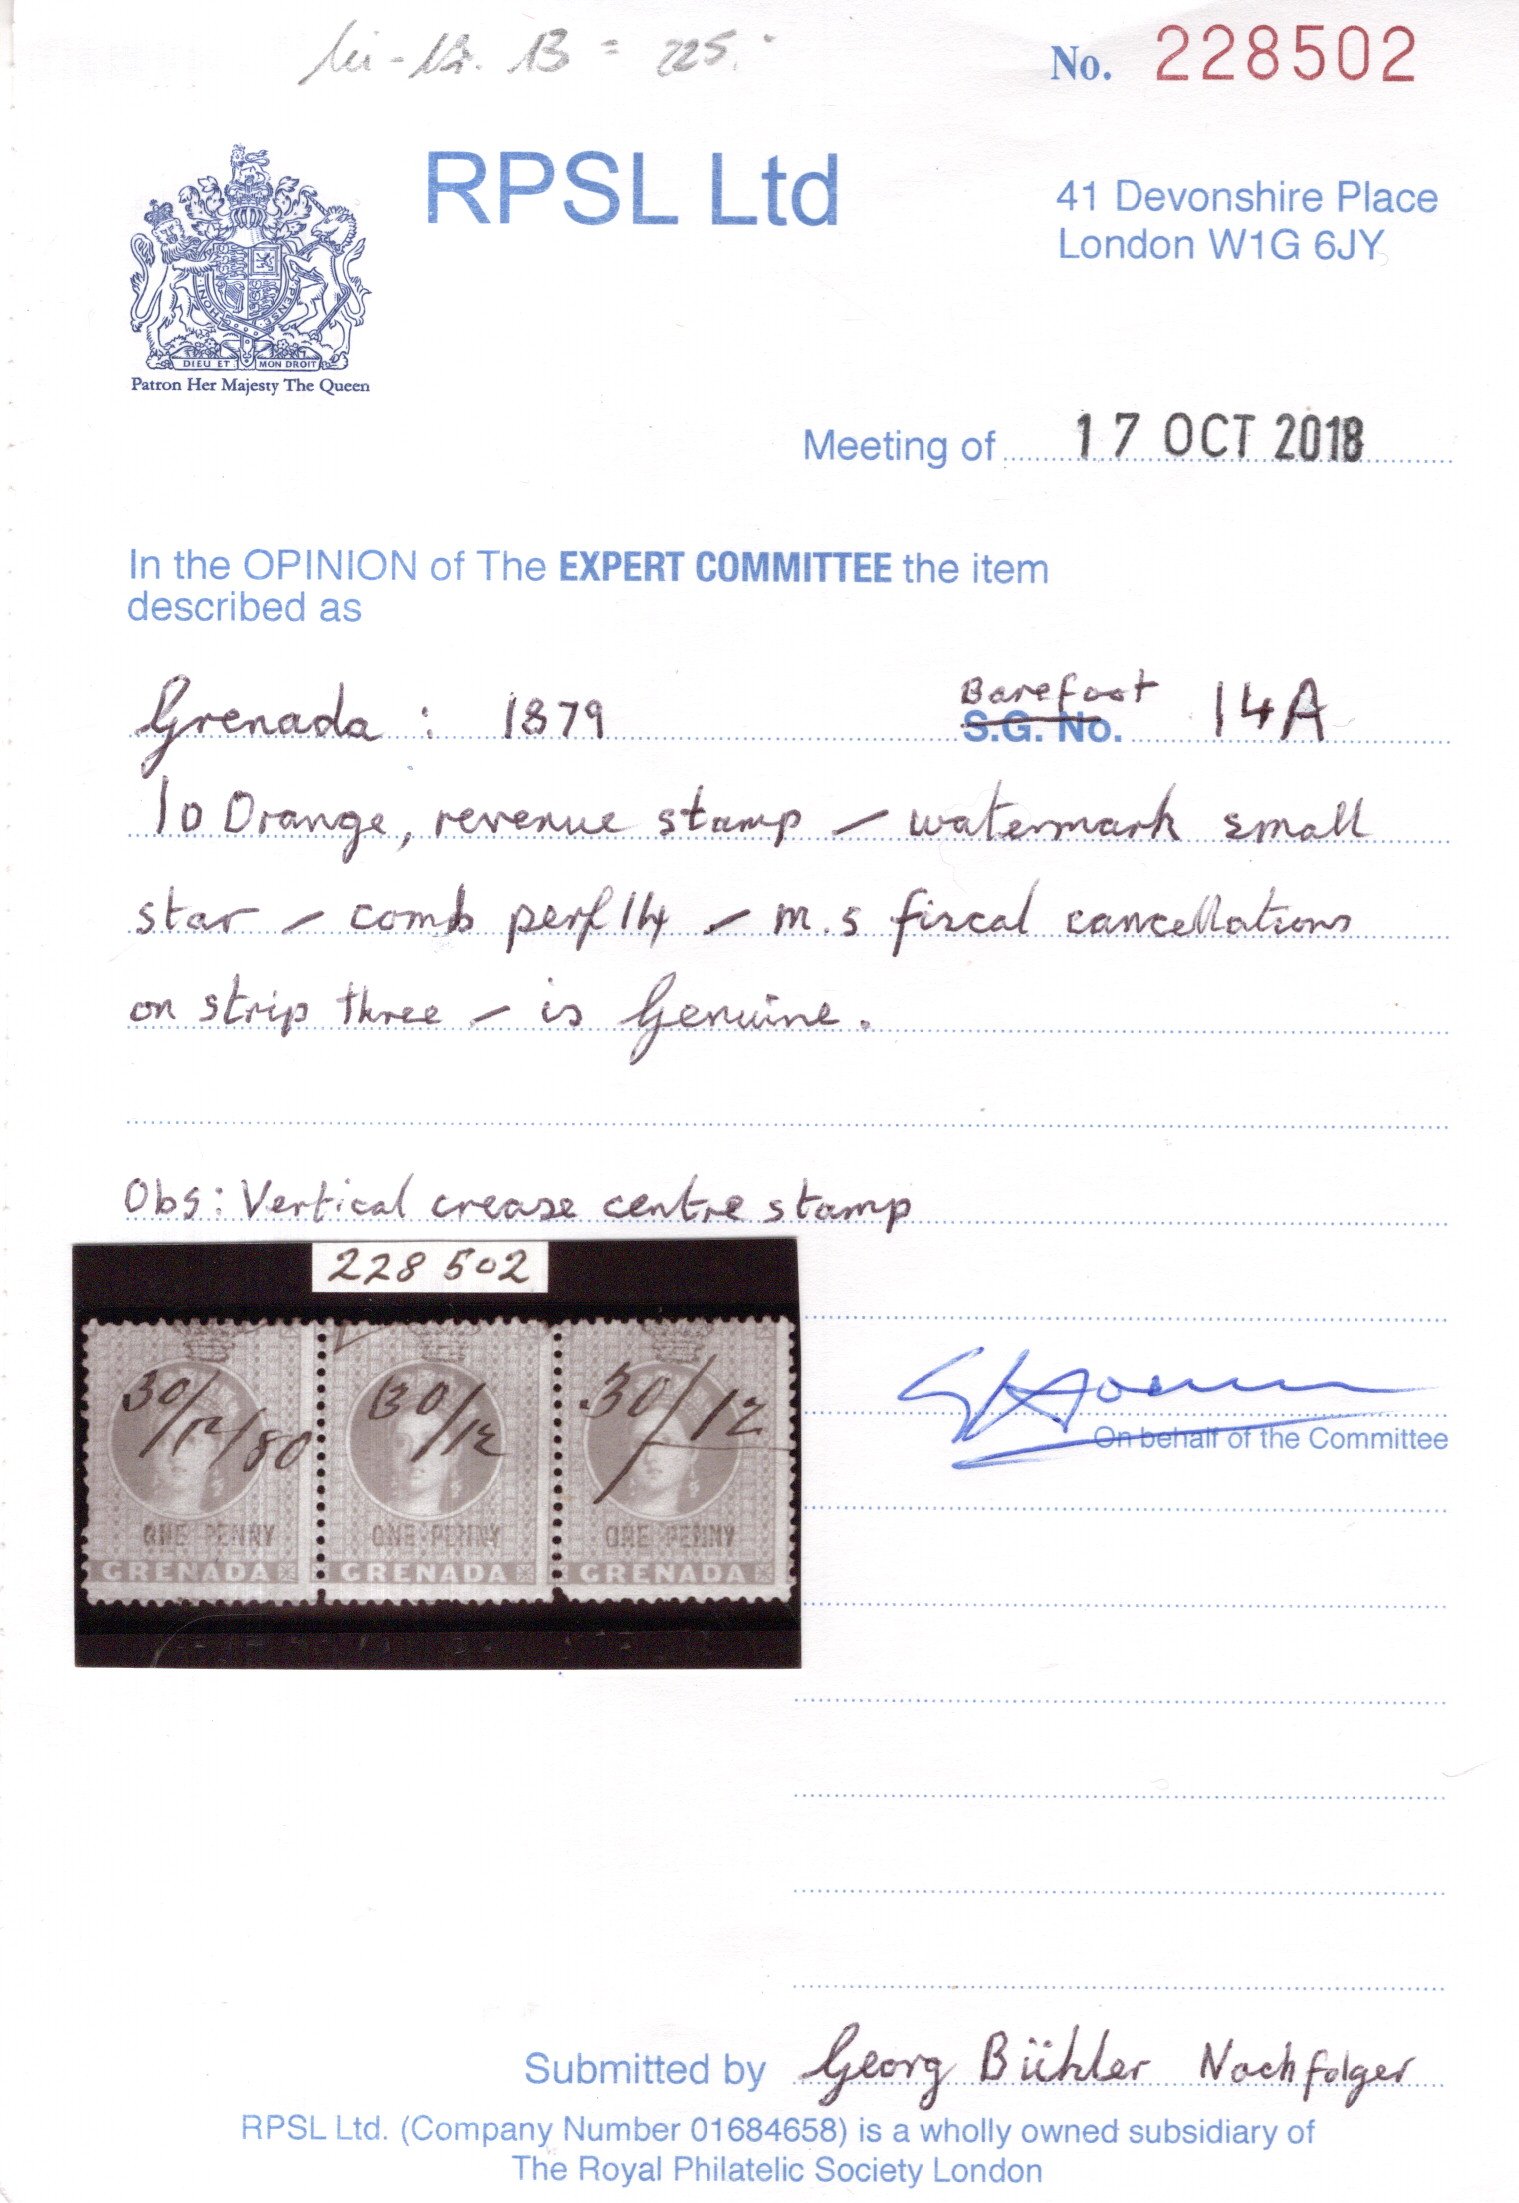 = 225.
No. 228502
RPSL Ltd
41 Devonshire Place
London W1G 6JY
DIEU ET MON DROIT
Patron Her Majesty The Queen
Meeting of 17 OCT 2018
In the OPINION of The EXPERT COMMITTEE the item
described as
Grenada : 1879 Barefoot S.G. No. 14A
1D Orange, revenue stamp – watermark small
star – comb perf 14 – m.s fiscal cancellations
on strip three – is Genuine.
Obs: Vertical crease centre stamp
228 502
30/12/80 30/12 30/12
ONE PENNY ONE PENNY ONE PENNY
GRENADA GRENADA GRENADA
On behalf of the Committee
Submitted by Georg Bühler Nachfolger
RPSL Ltd. (Company Number 01684658) is a wholly owned subsidiary of
The Royal Philatelic Society London